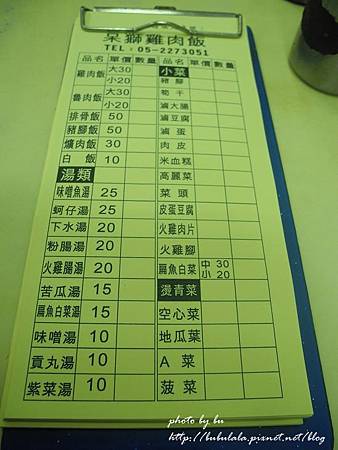 呆獅雞肉飯
TEL：05-2273051
品名 單價 數量 品名 單價 數量
雞肉飯 大30 小菜
小20 豬腳
魯肉飯 大30 筍干
小20 滷大腸
排骨飯 50 滷豆腐
豬腳飯 50 滷蛋
爌肉飯 30 肉皮
白飯 10 米血糕
湯類 高麗菜
味噌魚湯 25 菜頭
蚵仔湯 25 皮蛋豆腐
下水湯 20 火雞肉片
粉腸湯 20 火雞腳
火雞腸湯 20 扁魚白菜 中30 小20
苦瓜湯 15 燙青菜
扁魚白菜湯 15 空心菜
味噌湯 10 地瓜葉
貢丸湯 10 A菜
紫菜湯 10 菠菜
photo by bu
http://bubulala.pixnet.net/blog